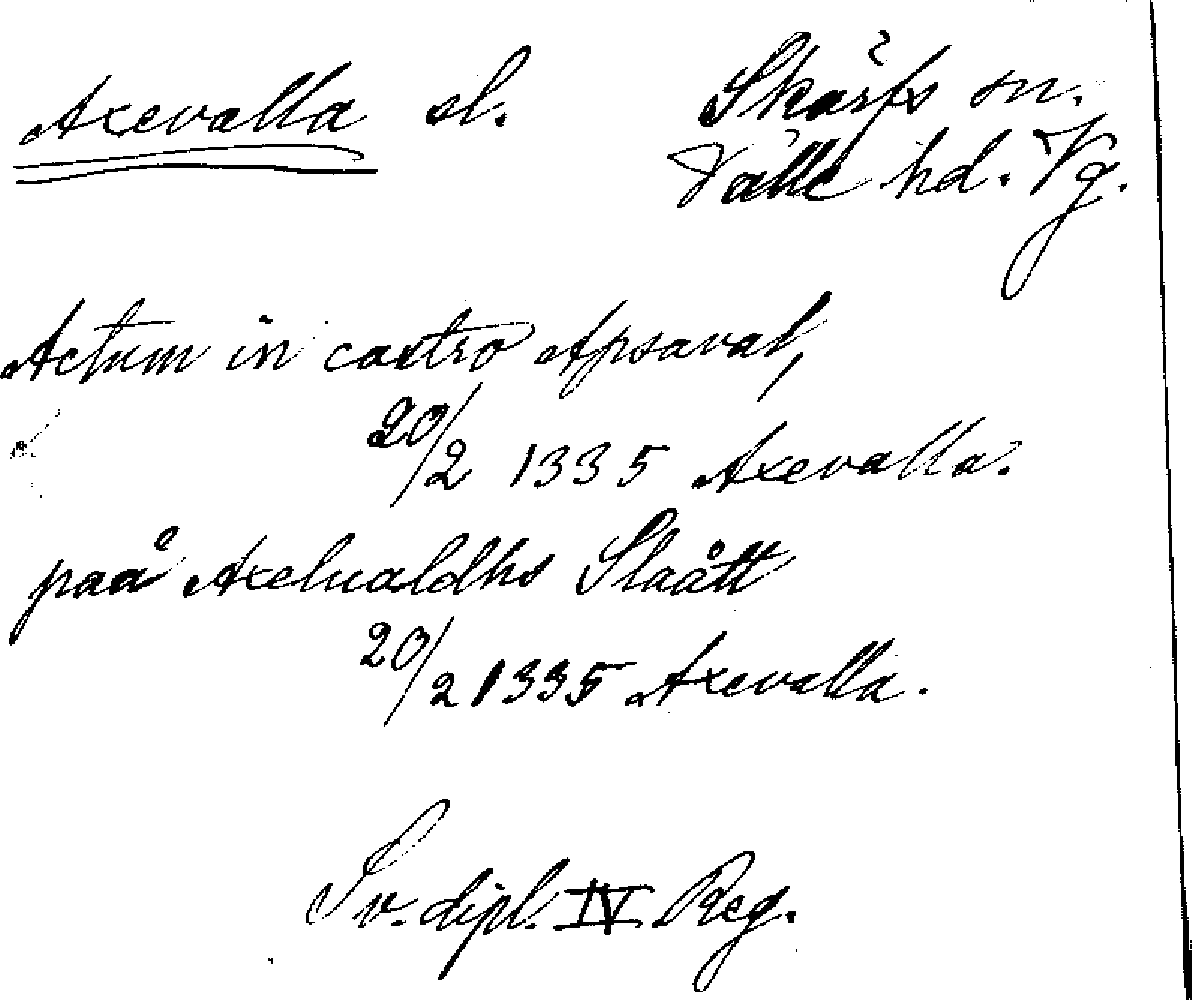 Axevalla sl. Skärfs sn.
Valle hd. Vg.
Actum in castro Apsaval,
20/2 1335 Axevalla.
paå Axeluald​hs Slaått
20/2 1335 Axevalla.
Sv. dipl. IV Reg.